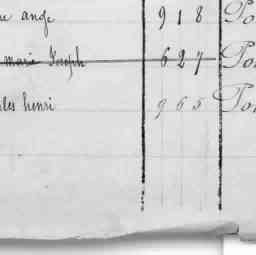 ange 918 Po
marie Joseph 627 Po
les henri 965 Po